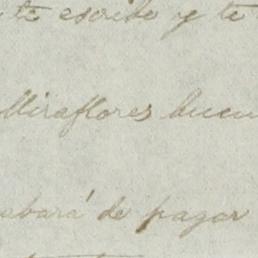 te escribo y te
Miraflores buen
abará de pagar